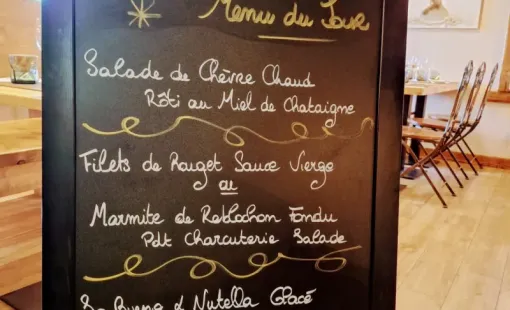 Menu du Soir
Salade de Chèvre Chaud
Rôti au Miel de Chataigne
Filets de Rouget Sauce Vierge
ou
Marmite de Reblochon Fondu
Pdt Charcuterie Salade
Nutella Glacé